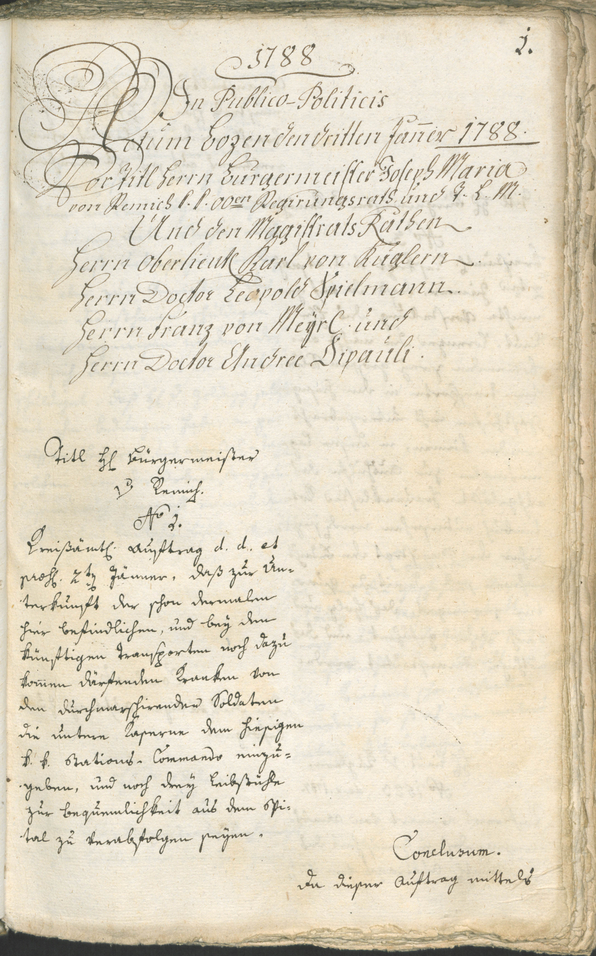 1.
1788
In Publico-Politicis
Actum Bozen den dritten Jänner 1788.
Vor Titl Herrn Burgermeister Joseph Maria
von Remich k. k. oöen Regirungsrath und T. L. M.
Und den Magistrats Räthen
Herrn Oberlieut. Karl von Kuglern
Herrn Doctor Leopold Spielmann
Herrn Franz von Mayrl und
Herrn Doctor Andree Dipauli.
Titl H. Bürgermeister
v. Remich.
No 1.
Kreißämtl. Auftrag d. d. et
præs. 2ten Jänner, daß zur Un-
terkunft der schon dermalen
hier befindlichen, und bey den
künftigen Transporten noch dazu
kommen därftenden Kranken von
den durchmarschirender Soldaten
die untere Caserne dem hiesigen
k. k. Stations-Commando einzu-
geben, und noch drey Leibstühle
zur bequemlichkeit aus dem Spi-
tal zu verabfolgen seyen.
Conclusum.
Da dieser Auftrag mittels